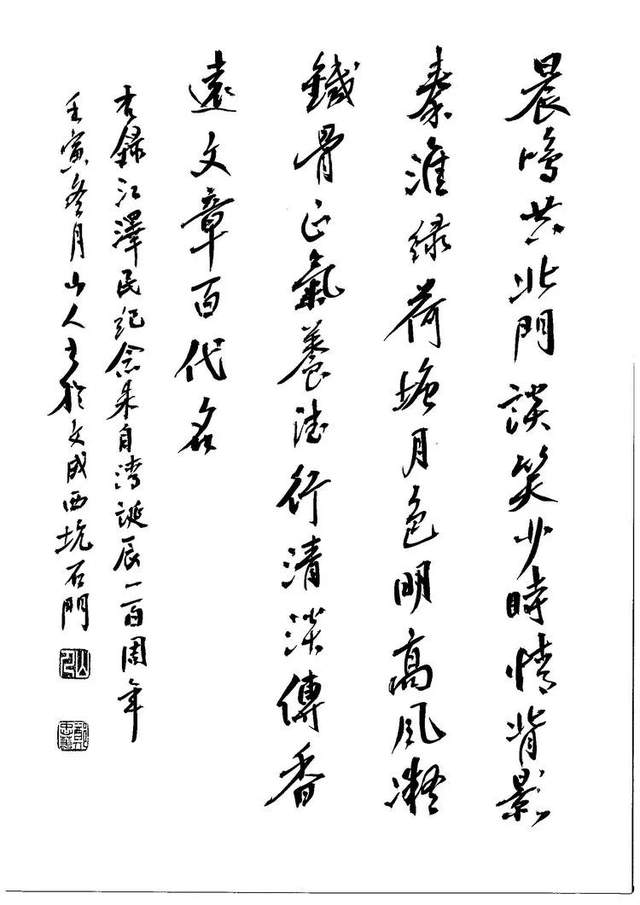 晨鳴共北門談笑少時情背影
秦淮綠荷塘月色明高風凝
鐵骨正氣養德行清淡傳香
遠文章百代名
右錄江澤民紀念朱自清誕辰一百周年
壬寅冬月山人書於文成西坑石門